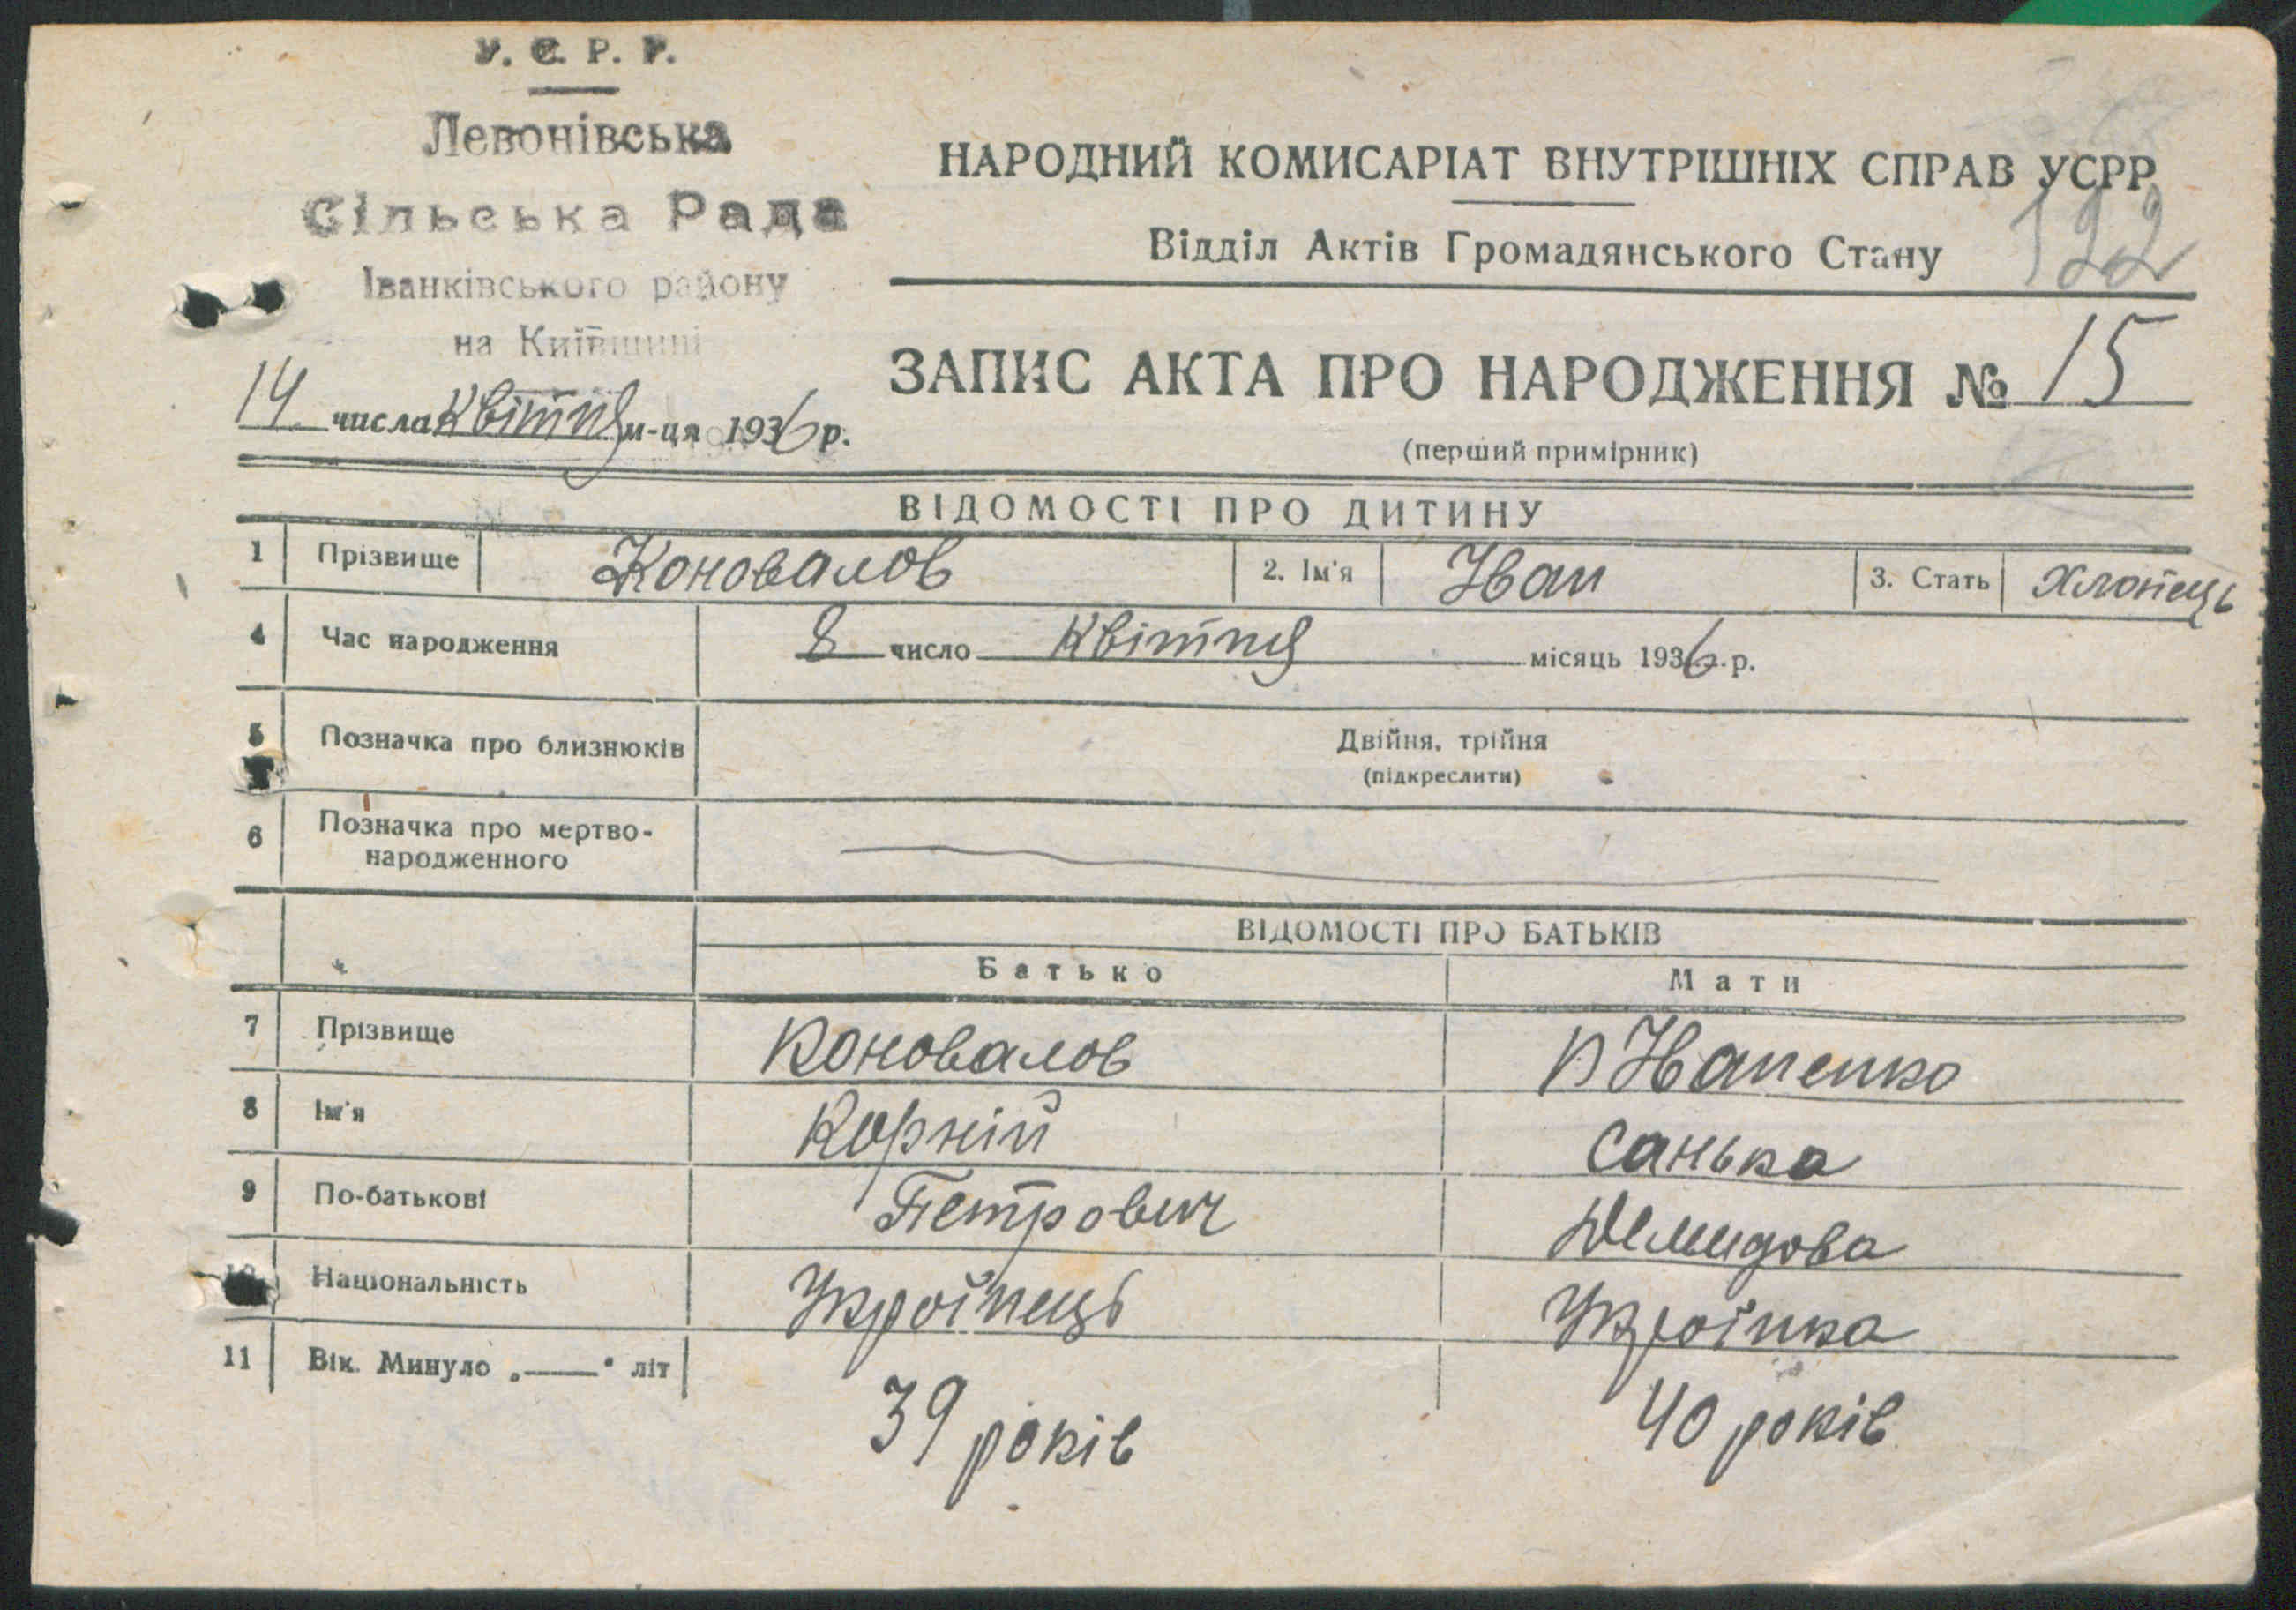 У. С. Р. Р.
Левонівська
Сільська Рада
Іванківського району
на Київщині
14 числа Квітня м-ця 1936 р.
НАРОДНИЙ КОМИСАРІАТ ВНУТРІШНІХ СПРАВ УСРР
Відділ Актів Громадянського Стану
122
ЗАПИС АКТА ПРО НАРОДЖЕННЯ № 15
(перший примірник)
ВІДОМОСТІ ПРО ДИТИНУ
1 Прізвище Коновалов 2. Ім'я Іван 3. Стать Хлопець
4 Час народження 8 число Квітня місяць 1936 р.
5 Позначка про близнюків Двійня, трійня
(підкреслити)
6 Позначка про мертво-
народженного
ВІДОМОСТІ ПРО БАТЬКІВ
Батько Мати
7 Прізвище Коновалов
8 Ім'я Корній Санька
9 По-батькові Петрович Демидова
10 Національність Україінець Українка
11 Вік. Минуло „—" літ
39 років 40 років